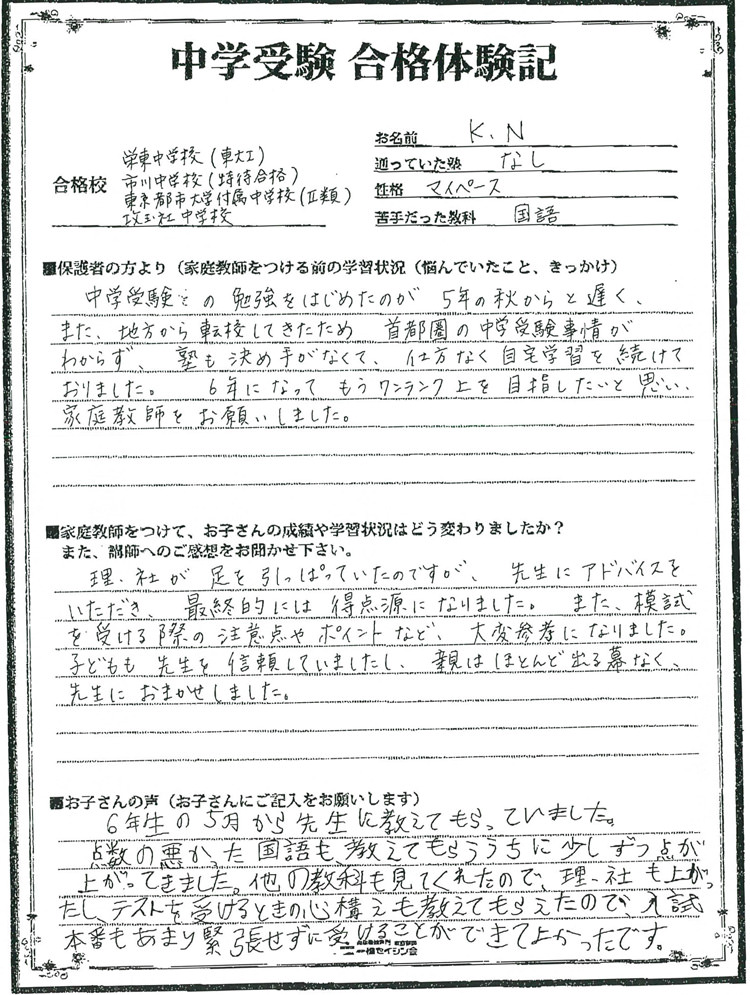 中学受験 合格体験記
お名前 K.N
通っていた塾 なし
性格 マイペース
苦手だった教科 国語
合格校
栄東中学校(東大I)
市川中学校(特待合格)
東京都市大学付属中学校(II類)
攻玉社中学校
■保護者の方より(家庭教師をつける前の学習状況(悩んでいたこと、きっかけ)
中学受験との勉強をはじめたのが 5年の秋からと遅く、
また、地方から転校してきたため 首都圏の中学受験事情が
わからず、塾も決め手がなくて、仕方なく自宅学習を続けて
おりました。 6年になって もうワンランク上を目指したいと思い、
家庭教師をお願いしました。
■家庭教師をつけて、お子さんの成績や学習状況はどう変わりましたか?
また、講師へのご感想をお聞かせ下さい。
理・社が 足を引っぱっていたのですが、先生にアドバイスを
いただき、最終的には得点源になりました。また、模試
を受ける際の注意点やポイントなど、大変参考になりました。
子どもも先生を信頼していましたし、親はほとんど出る幕なく、
先生におまかせしました。
■お子さんの声(お子さんにご記入をお願いします)
6年生の5月から先生に教えてもらっていました。
点数の悪かった国語も、教えてもらううちに少しずつ点が
上がってきました。他の教科も見てくれたので、理・社も上がっ
たし、テストを受けるときの心構えも教えてもらえたので、入試
本番もあまり緊張せずに受けることができてよかったです。
一橋セイシン会